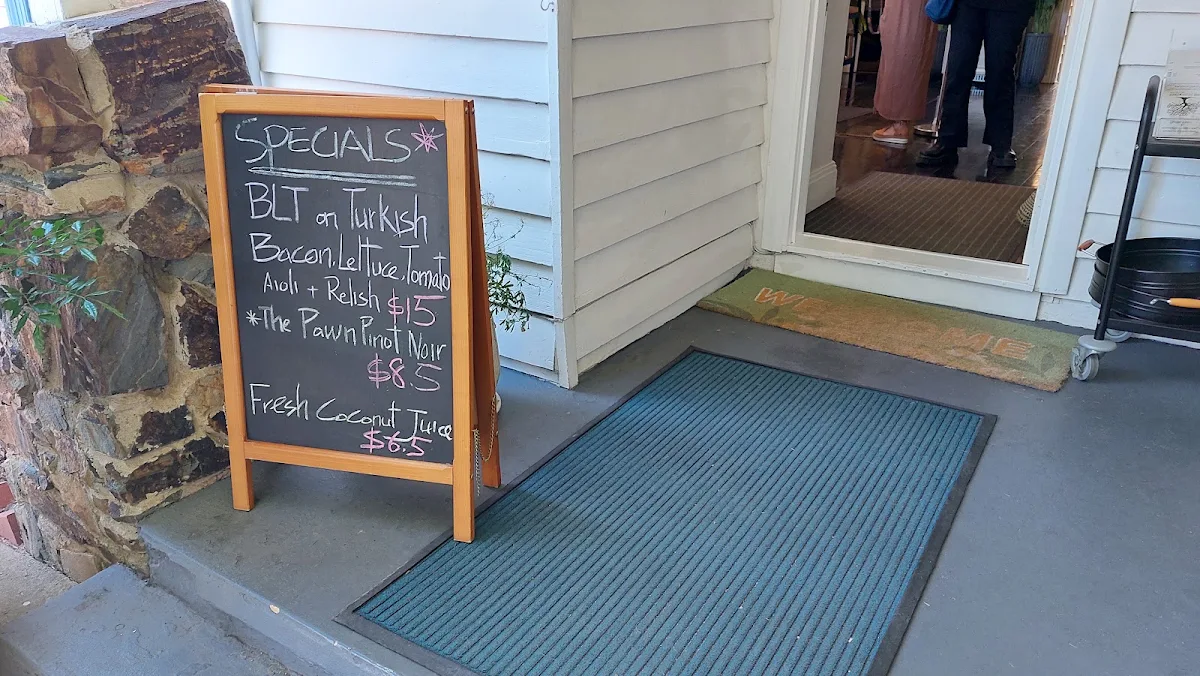 SPECIALS
BLT on Turkish
Bacon, Lettuce, Tomato
Aioli + Relish $15
*The Pawn Pinot Noir
$8.5
Fresh Coconut Juice
$6.5